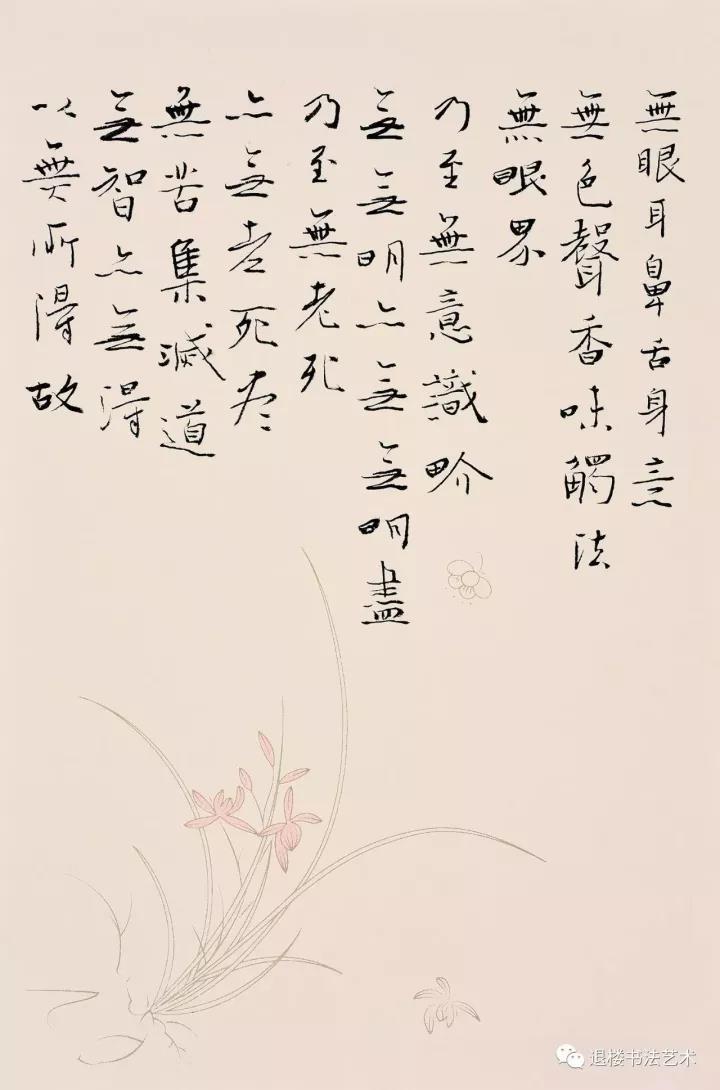 無眼耳鼻舌身意
無色聲香味觸法
無眼界
乃至無意識畍
無無明亦無無明盡
乃至無老死
亦無老死尽
無苦集滅道
無智亦無得
以無所得故
退楼书法艺术